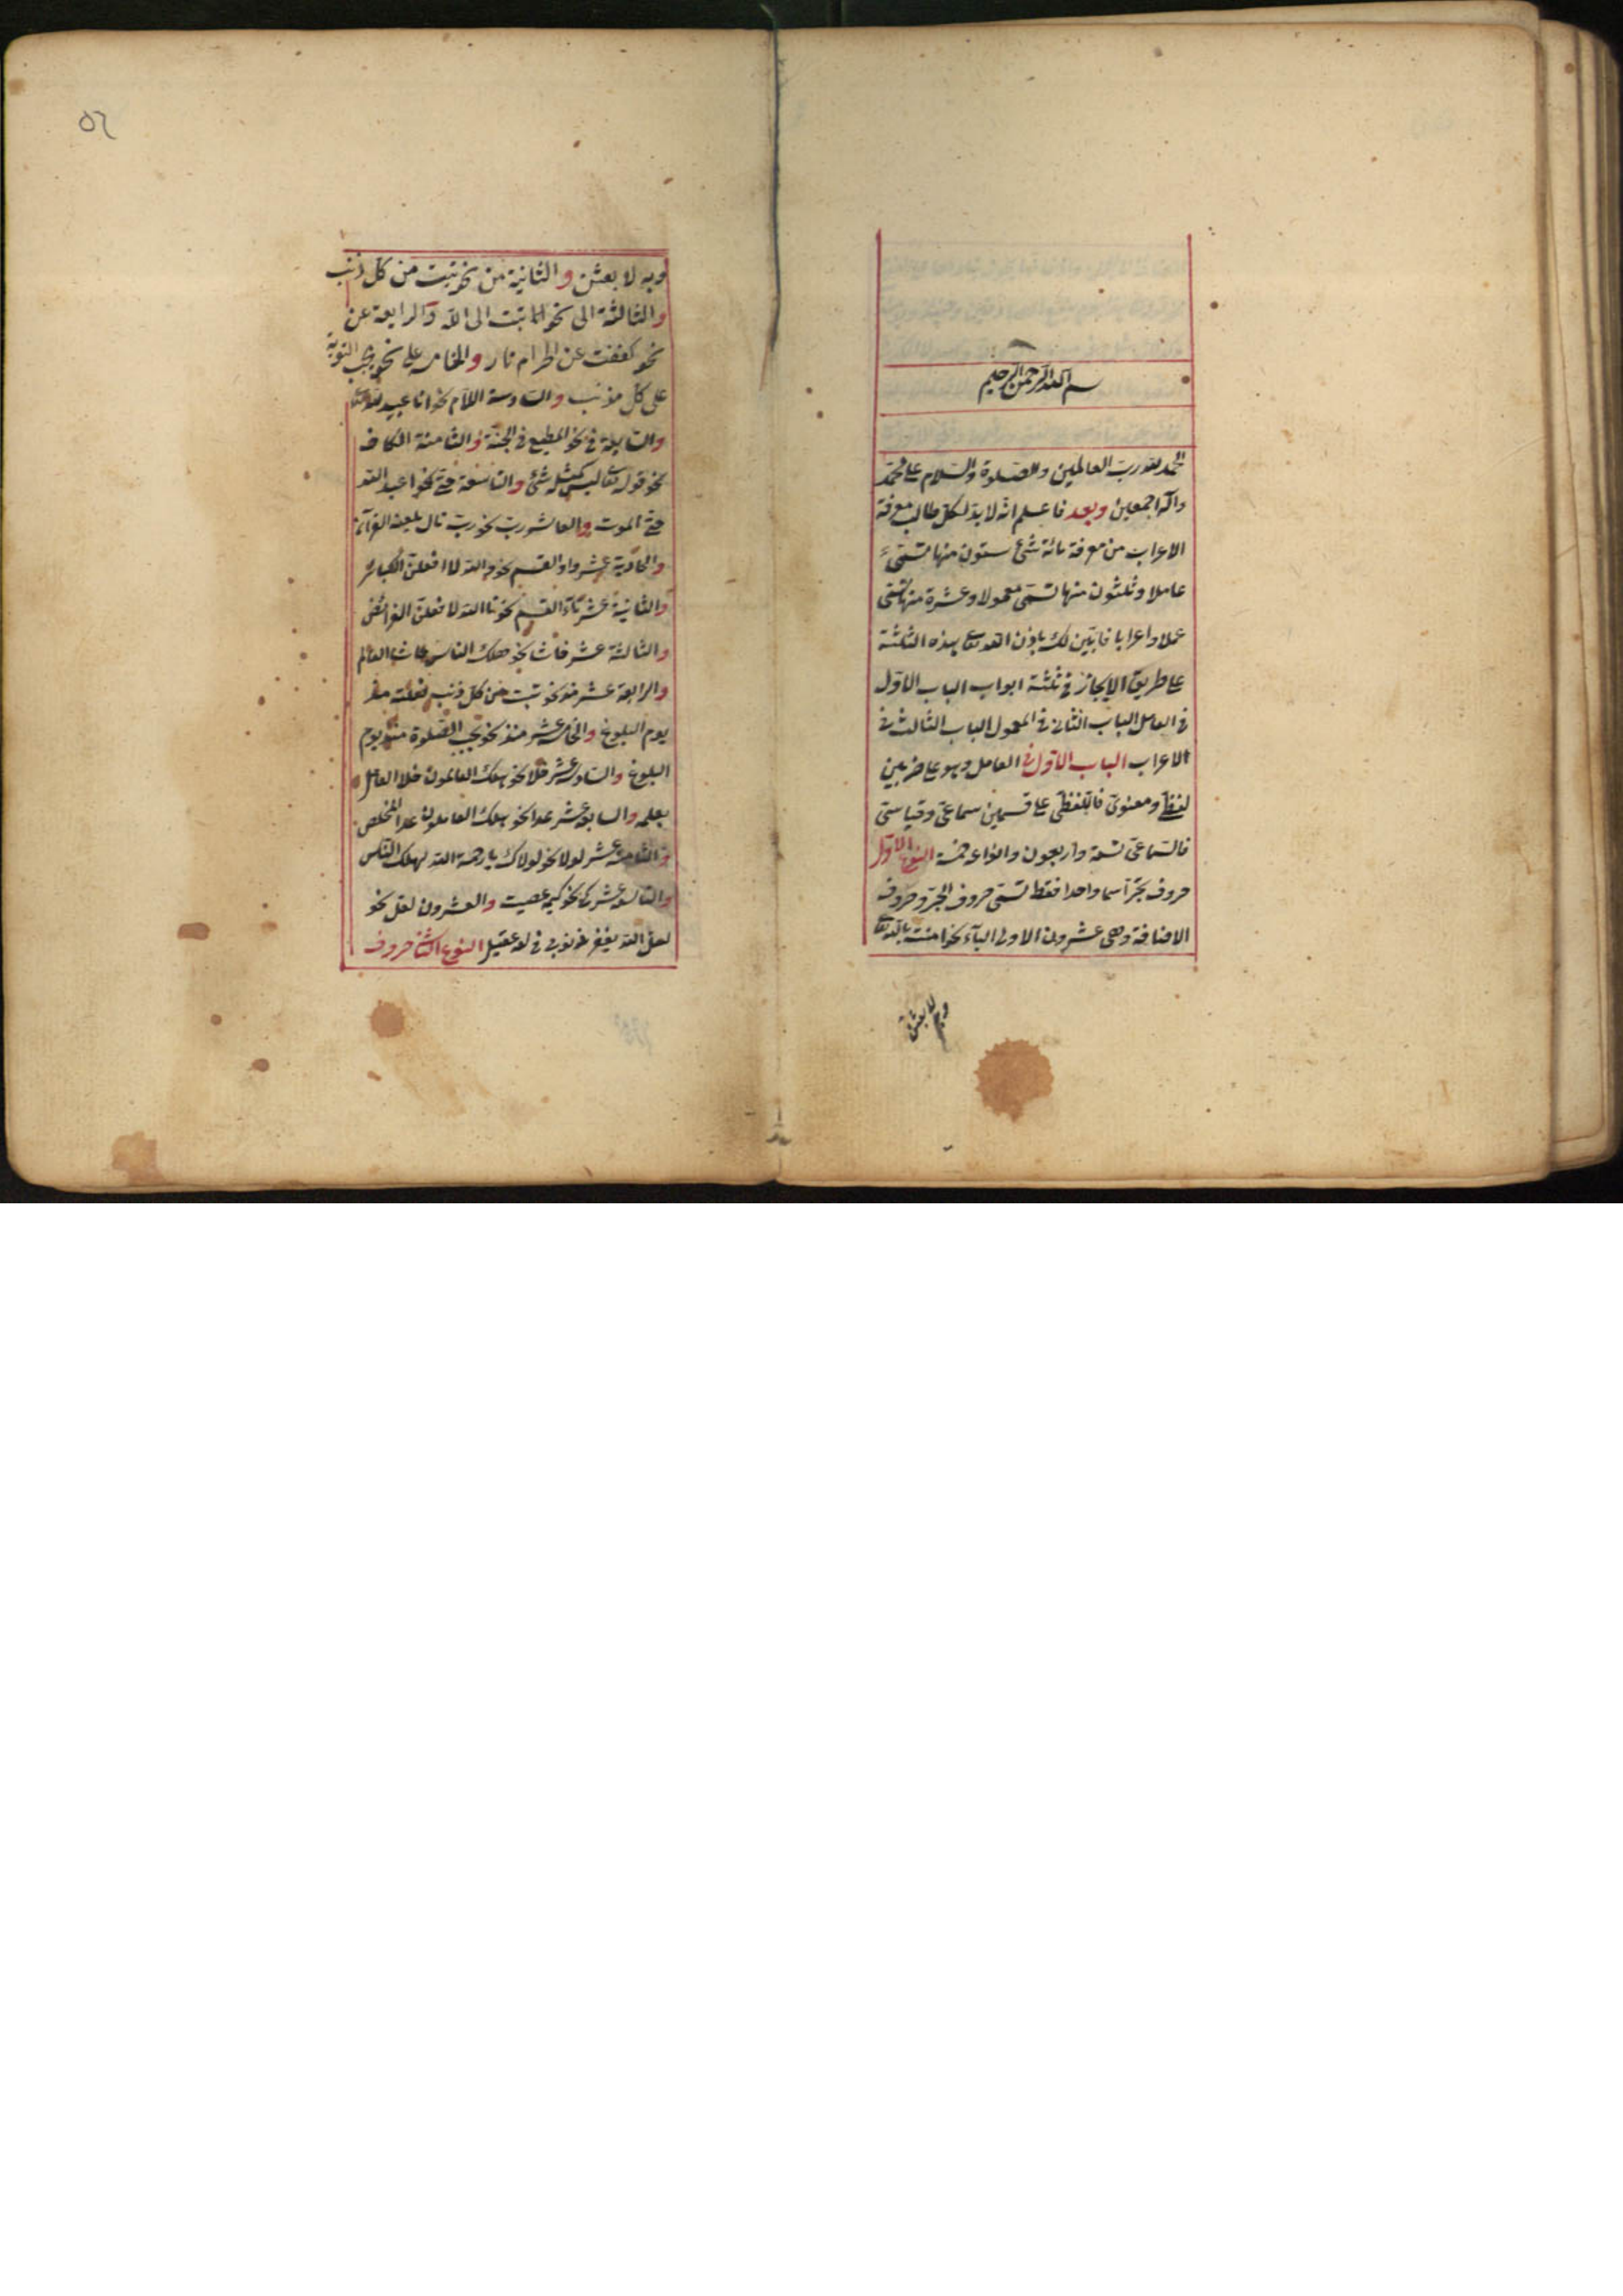 بسم الله الرحمن الرحيم
الحمد لله رب العالمين والصلوة والسلام على محمد
وآله اجمعين وبعد فاعلم انه لا بد لكل طالب معرفة
الاعراب من معرفة مائة شئ ستون منها تسمى
عاملا وثلثون منها تسمى معمولا وعشرة منها تسمى
عملا واعرابا فابين لك باذن الله تعالى هذه الثلثة
على طريق الايجاز فى ثلثة ابواب الباب الاول
فى العامل الباب الثانى فى المعمول الباب الثالث فى
الاعراب الباب الاول فى العامل وهو على ضربين
لفظى ومعنوى فاللفظى على قسمين سماعى وقياسى
فالسماعى تسعة واربعون وانواعه خمسة النوع الاول
حروف تجر اسما واحدا فقط تسمى حروف الجر وحروف
الاضافة وهى عشرون الاولى الباء نحو امنت بالله تعالى
وبه لابعثن
وبه لا بعثن والثانية من نحو تبت من كل ذنب
والثالثة الى نحو تبت الى الله والرابعة عن
نحو كففت عن الحرام والخامسة على نحو يجب التوبة
على كل مذنب والسادسة اللام نحو انا عبيد لله تعالى
والسابعة فى نحو المطيع فى الجنة والثامنة الكاف
نحو قوله تعالى ليس كمثله شئ والتاسعة حتى نحو اعبد الله
حتى الموت والعاشر رب نحو رب تال يلعنه القرآن
والحادية عشر واو القسم نحو والله لا افعلن الكبائر
والثانية عشر تاء القسم نحو تا الله لا فعلن الفرائض
والثالثة عشر حاشا نحو هلك الناس حاشا العالم
والرابعة عشر مذ نحو تبت من كل ذنب فعلته مذ
يوم البلوغ والخامسة عشر منذ نحو يجب الصلوة منذ يوم
البلوغ والسادسة عشر خلا نحو هلك العالمون خلا العامل
بعلمه والسابع عشر عدا نحو هلك العاملون عدا المخلص
والثامنة عشر لولا نحو لولاك يا رحمة الله لهلك الناس
والتاسعة عشر كى نحو كيمه عصيت والعشرون لعل نحو
لعل الله يغفر ذنوبى فى لغة عقيل النوع الثانى حروف